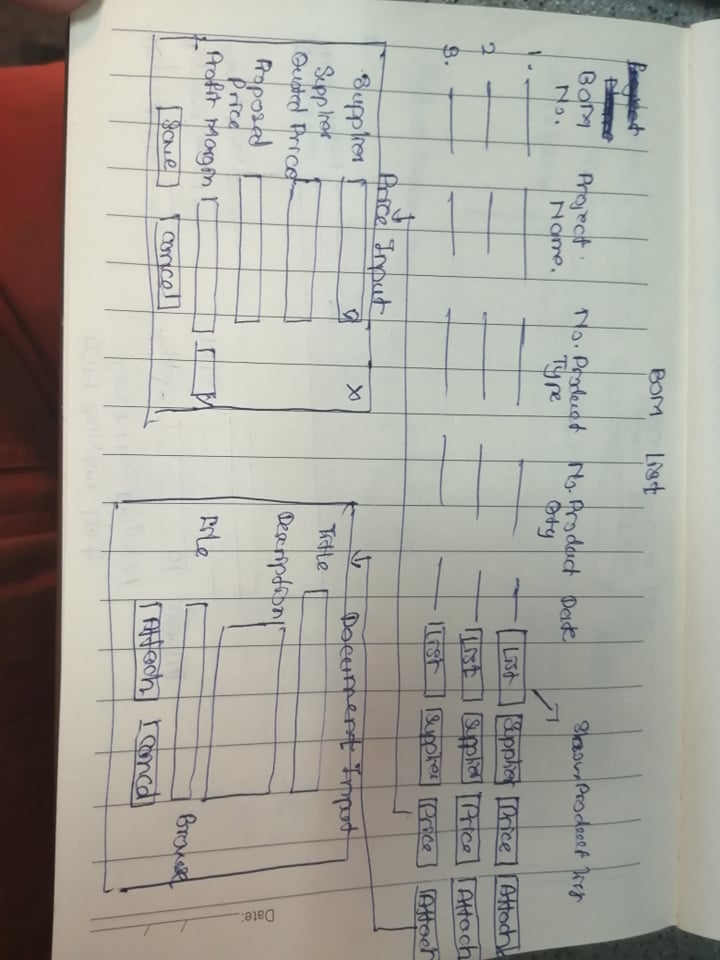 BOM List
BOM No. Project Name. No. Product Type No. Product Qty Date Show Product list
1. List Supplier Price Attach
2 List Supplier Price Attach
3. List Supplier Price Attach
Price Input
Supplier
x
Supplier Quoted Price
Proposed Price
Profit Margin
Save Cancel
Document Input
Title
Description
File Browse
Attach Cancel
Date: